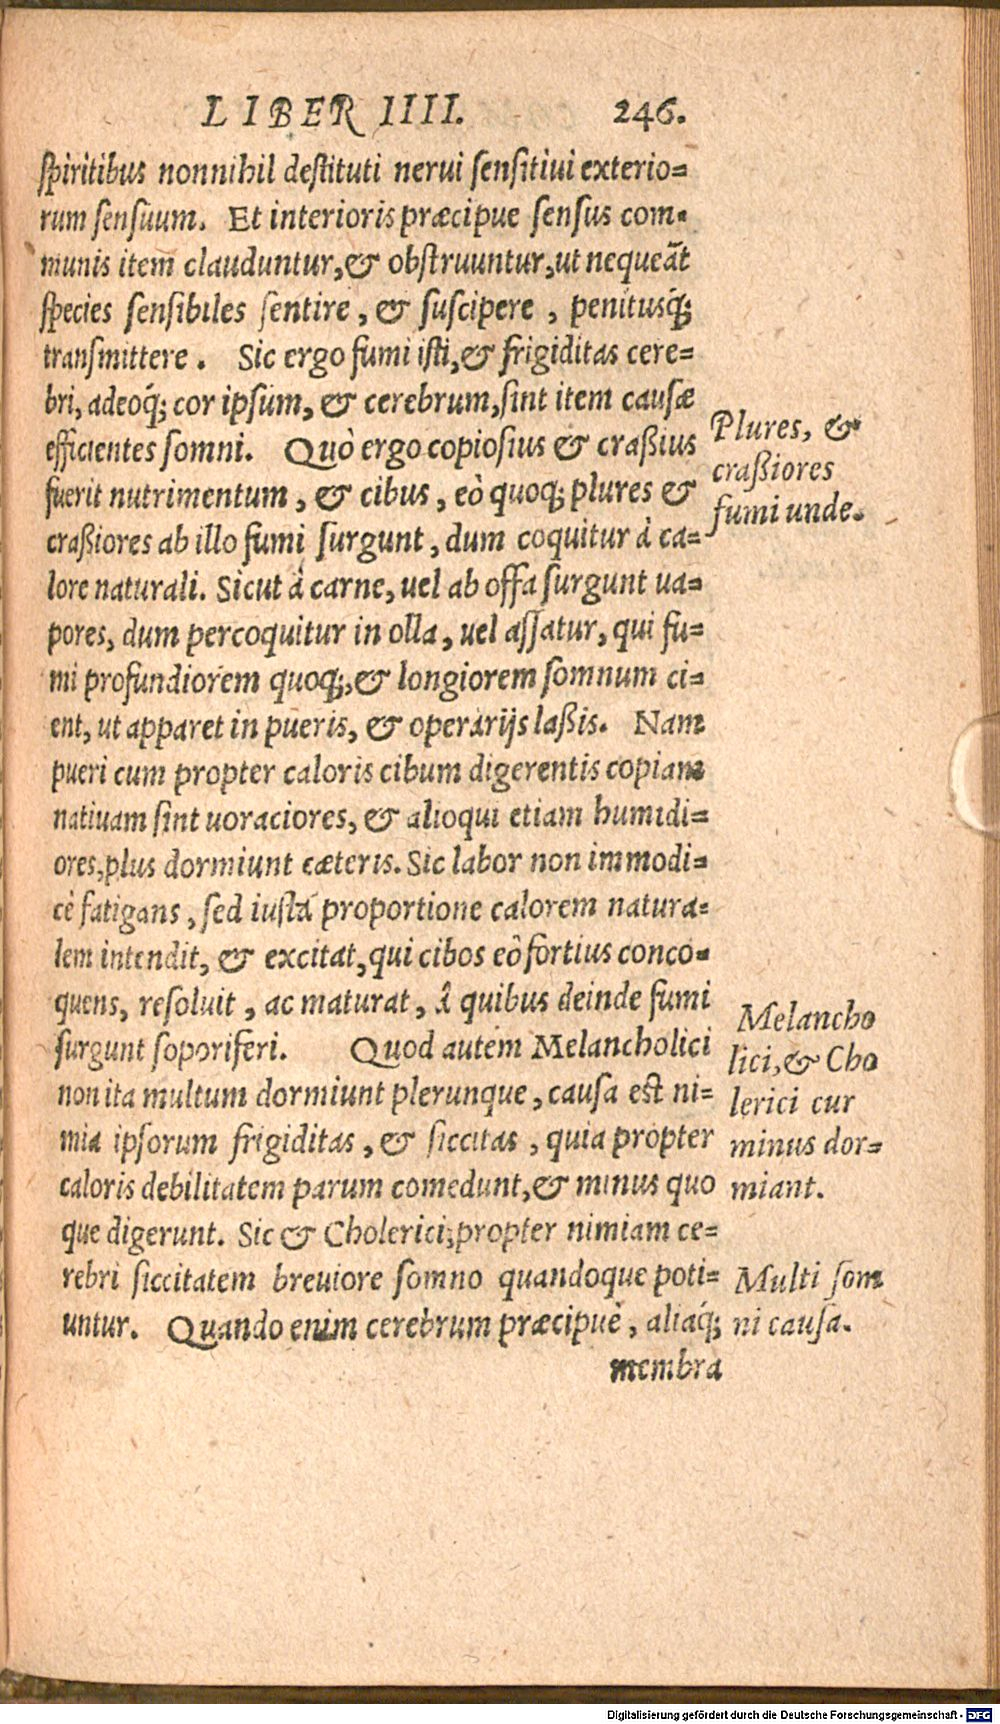 LIBER IIII. 246.
spiritibus nonnihil destituti nerui sensitiui exterio=
rum sensuum. Et interioris præcipue sensus com=
munis item clauduntur, & obstruuntur, ut nequeāt
species sensibiles sentire, & suscipere, penitusq́;
transmittere. Sic ergo fumi isti, & frigiditas cere=
bri, adeoq́; cor ipsum, & cerebrum, sint item causæ
efficientes somni. Quò ergo copiosius & craßius
fuerit nutrimentum, & cibus, eò quoq; plures &
craßiores ab illo fumi surgunt, dum coquitur à ca=
lore naturali. Sicut à carne, uel ab offa surgunt ua=
pores, dum percoquitur in olla, uel assatur, qui fu=
mi profundiorem quoq;, & longiorem somnum ci=
ent, ut apparet in pueris, & operarijs laßis. Nam
pueri cum propter caloris cibum digerentis copiam
natiuam sint uoraciores, & alioqui etiam humidi=
ores, plus dormiunt cæteris. Sic labor non immodi=
cè fatigans, sed iustá proportione calorem natura=
lem intendit, & excitat, qui cibos eò fortius conco=
quens, resoluit, ac maturat, à quibus deinde fumi
surgunt soporiferi. Quod autem Melancholici
non ita multum dormiunt plerunque, causa est ni=
mia ipsorum frigiditas, & siccitas, quia propter
caloris debilitatem parum comedunt, & minus quo
que digerunt. Sic & Cholerici, propter nimiam ce=
rebri siccitatem breuiore somno quandoque poti=
untur. Quando enim cerebrum præcipuè, aliaq́;
membra
Plures, &
craßiores
fumi unde.
Melancho
lici, & Cho
lerici cur
minus dor=
miant.
Multi som
ni causa.
Digitalisierung gefördert durch die Deutsche Forschungsgemeinschaft - DFG